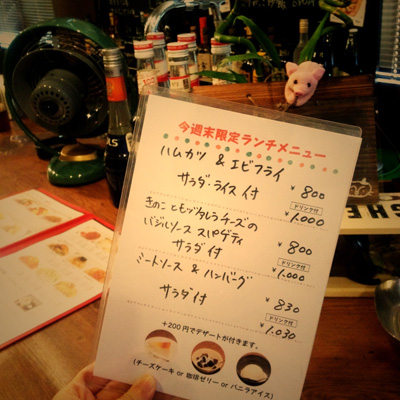 今週末限定ランチメニュー
ハムカツ & エビフライ
サラダ・ライス付 ¥800
ドリンク付
¥1.000
きのことモッツァレラチーズの
バジルソース スパゲティ ¥800
サラダ付
ドリンク付
¥1.000
ミートソース & ハンバーグ
サラダ付 ¥830
ドリンク付
¥1.030
+200円でデザートが付きます。
(チーズケーキ or 珈琲ゼリー or バニラアイス)